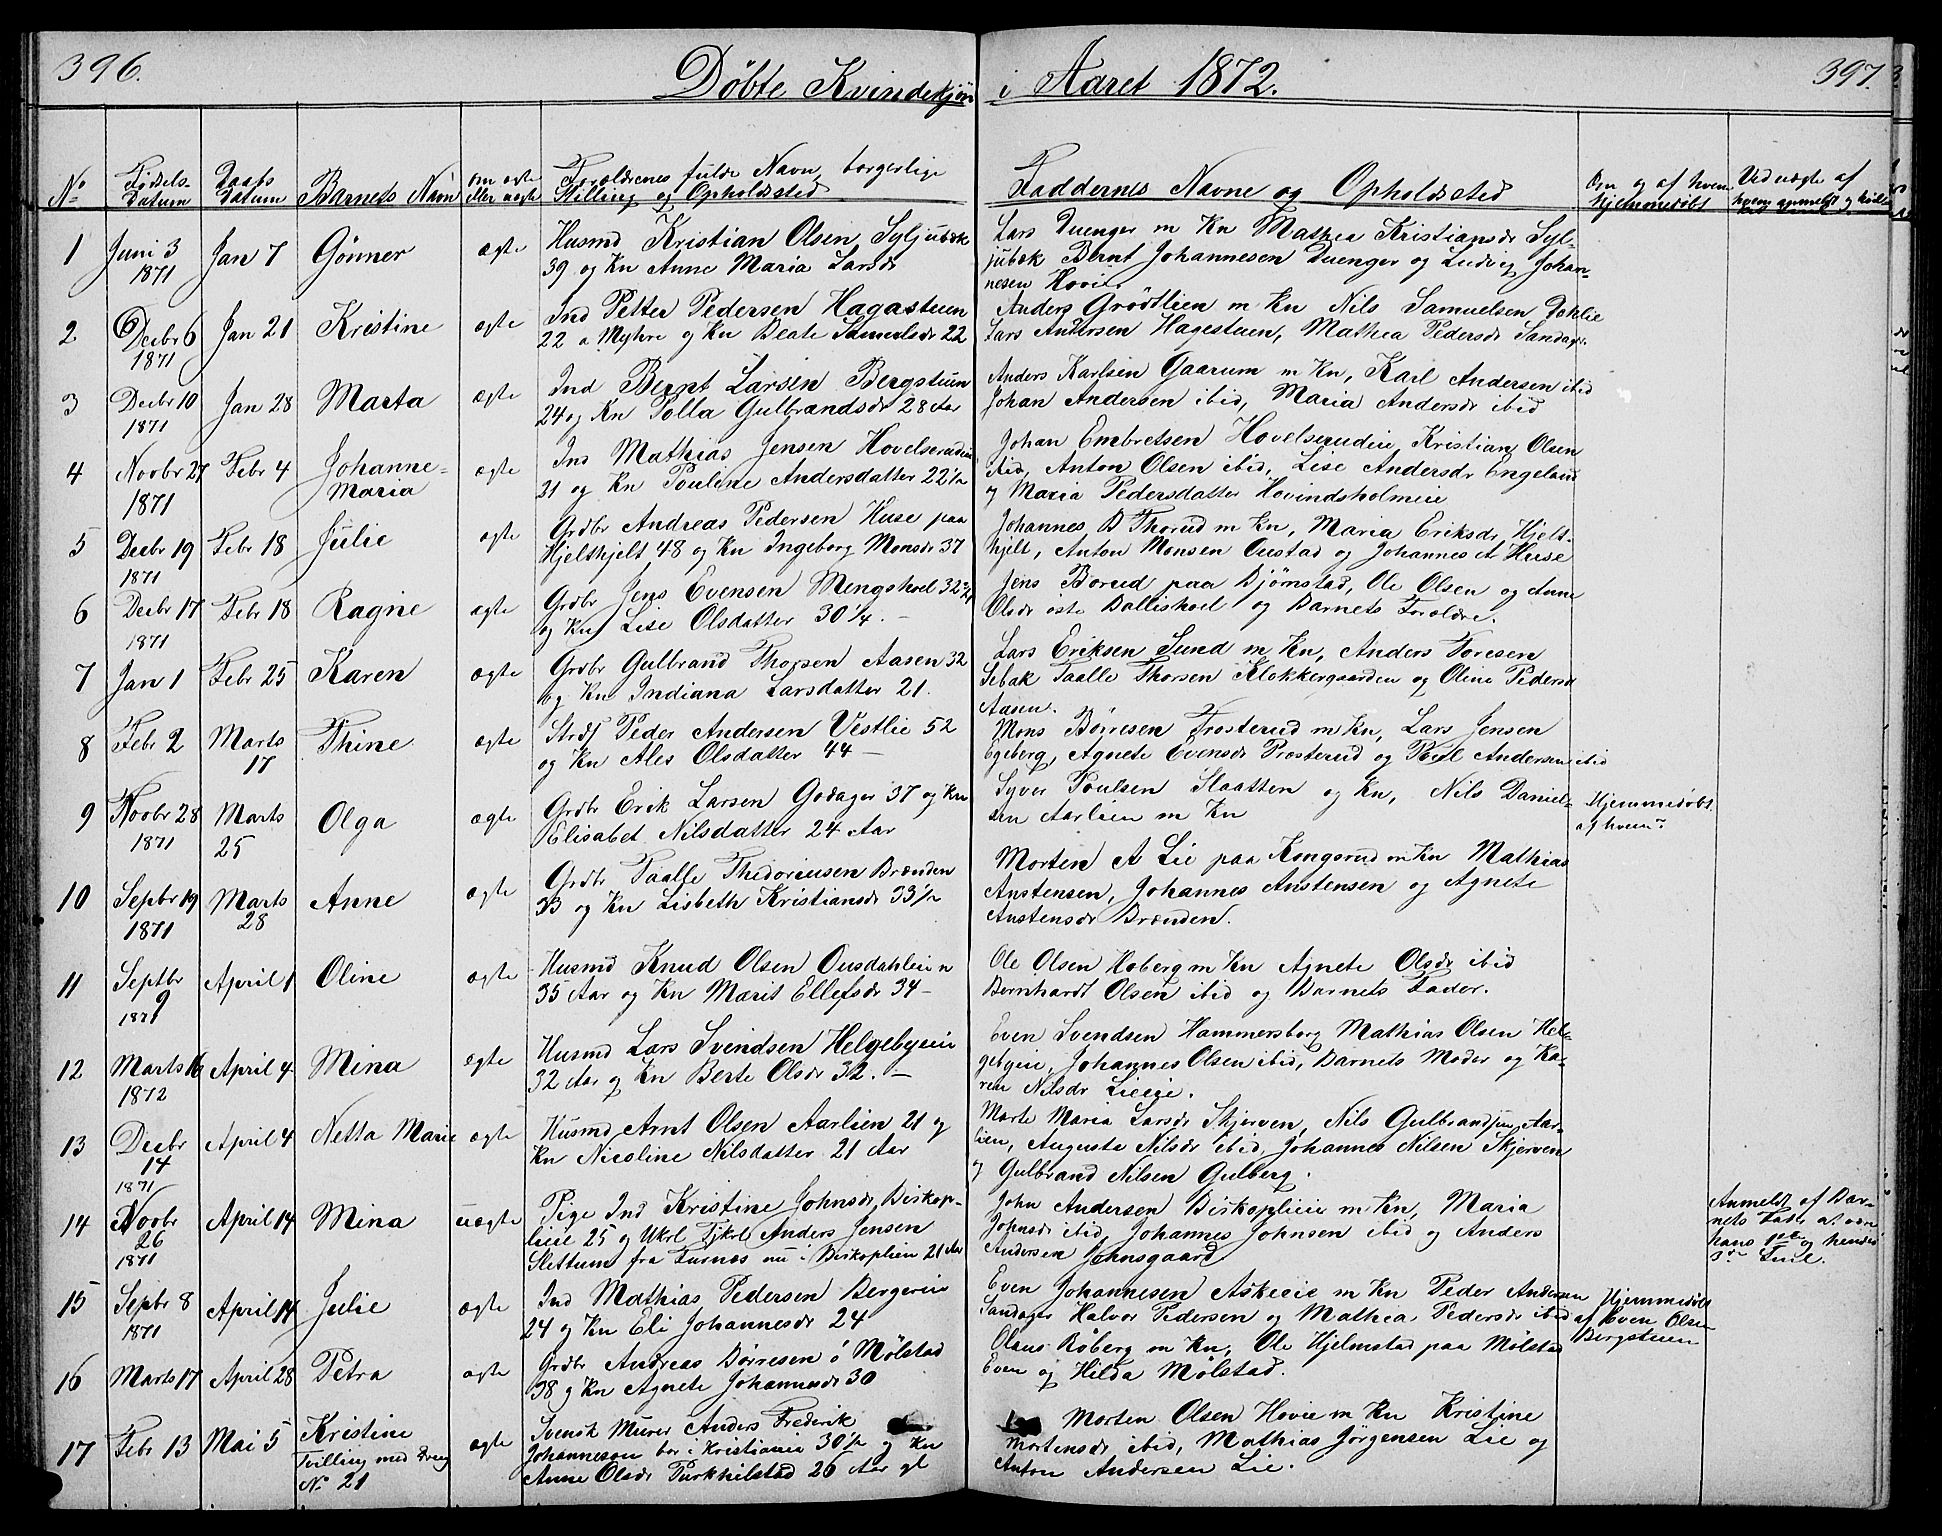 396.
Döbte Kvindekjön i Aaret 1872.
397.
No
Födsels-Datum
Daabs Datum
Barnets Navn
om ægte eller uægte
Forældrenes fulde Navn, borgerlige Stilling og Opholdssted
Faddernes Navne og Opholdssted
Om og af hvem hjemmedöbt
Ved uægte af hvem anmeldt
1 Juni 3 1871 Jan 7 Gönner ægte
Husmd Kristian Olsen Syljubæk
39 og Kn Anne Maria Larsdr
Lars Duenger m Kn Mathea Kristiansdr Syl-
jubæk Bernt Johannesen Duenger og Ludvig Johan-
nesen
2 Decbr 6 1871 Jan 21 Kristine ægte
Ind Petter Pedersen Hagastuen
22 a Myhre og Kn Beate Samuelsdr 22
Anders Grödtlien m Kn Nils Samuelsen Dahlie
Lars Andersen Hagestuen, Mathea Pedersdr Sandager
3 Decbr 10 1871 Jan 28 Marta ægte
Ind Bernt Larsen Bergstuen
24 og Kn Polla Gulbrandsdr 28 Aar
Anders Karlsen Gaarum m Kn, Karl Andersen ibid
Johan Andersen ibid, Maria Andersdr ibid
4 Novbr 27 1871 Febr 4 Johanne Maria ægte
Ind Mathias Jensen Hovelsrudeie
21 og Kn Pouline Andersdatter 22 1/2
Johan Embretsen Hovelsrudeie, Kristian Olsen
ibid, Anton Olsen ibid, Lise Andersdr Engelund
og Maria Pedersdatter Hovindsholmeie
5 Decbr 19 1871 Febr 18 Julie ægte
Grdbr Andreas Pedersen Huse paa
Hjelthjelt 48 og Kn Ingeborg Monsdr 37
Johannes B Thorud m Kn, Maria Eriksdr Hjelt-
hjelt, Anton Monsen Oustad og Johannes A Huse
6 Decbr 17 1871 Febr 18 Ragne ægte
Grdbr Jens Evensen Mengshoel 32 3/4
og Kn Lise Olsdatter 30 1/4.
Jens Borud paa Bjørnstad, Ole Olsen og Anne
Olsdr öste Ballishoel og Barnets Forældre.
7 Jan 1 Febr 25 Karen ægte
Grdbr Gulbrand Thorsen Aasen 32
og Kn Indiana Larsdatter 21.
Lars Eriksen Sund m Kn, Anders Toresen
Sebak Paalle Thorsen Klokkergaarden og Oline Pedersd
Aasen.
8 Febr 2 Marts 17 Thine ægte
Strds Peder Andersen Vestlie 52
og Kn Ales Olsdatter 44
Mons Börresen Frosterud m Kn, Lars Jensen
Egeberg, Agnete Evensdr Prosterud og Poul Andersen ibid
9 Novbr 28 1871 Marts 25 Olga ægte
Grdbr Erik Larsen Godager 37 og Kn
Elisabet Nilsdatter 24 Aar
Syver Poulsen Slaatten og Kn, Nils Daniel-
sen Aarlien m Kn
Hjemmedöbt
af hvem?
10 Septbr 19 1871 Marts 28 Anne ægte
Grdbr Paalle Thedoriusen Brænden
33 og Kn Lisbeth Kristiansdr 33 1/2
Morten A Lie paa Kongsrud m Kn Mathias
Anstensen, Johannes Anstensen og Agnete
Anstensdr Brænden.
11 Septbr 9 1871 April 1 Oline ægte
Husmd Knud Olsen Ousdahleie
35 Aar og Kn Marit Ellefsdr 34
Ole Olsen Hoberg m Kn Agnete Olsdr ibid
Bernhardt Olsen ibid og Barnets Fader.
12 Marts 16 1872 April 4 Mina ægte
Husmd Lars Svendsen Helgebyeie
32 Aar og Kn Berte Olsdr 32.
Even Svendsen Hammersborg Mathias Olsen Hel-
gebyeie, Johannes Olsen ibid, Barnets Moder og Ka-
ren Nilsdr Lieeie.
13 Decbr 14 1871 April 4 Netta Marie ægte
Husmd Arnt Olsen Aarlien 21 og
Kn Nicoline Nilsdatter 21 Aar
Marte Maria Larsdr Skjerven, Nils Gulbrandsen Aar-
lien, Augusta Nilsdr ibid, Johannes Nilsen Skjerven
og Gulbrand Nilsen Gulberg.
14 Novbr 26 1871 April 14 Mina uægte
Pige Ind Kristine Johnsdr Biskop-
lieie 25 og Ukrl Tjkrl Anders Jensen
Slettum fra Furnæs nu i Biskoplien 21 Aar
John Andersen Biskoplieie m Kn, Maria
Johnsdr ibid, Johannes Johnsen ibid og Anders
Andersen Johnsgaard
Anmeldt af Bar-
nets Fader at være
hans 1ste og hendes
3die Feil.
15 Septbr 8 1871 April 14 Julie ægte
Ind Mathias Pedersen Bergereie
24 og Kn Eli Johannesdr 24
Even Johannesen Askeeie m Kn Peder Andersen
Sandager Halvor Pedersen og Mathea Pedersdr ibid
Hjemmedöbt
af Even Olsen
Bergstuen
16 Marts 17 April 28 Petra ægte
Grdbr Andreas Börresen ö Mölstad
38 og Kn Agnete Johannesdr 30
Olaus Röberg m Kn, Ole Hjelmstad paa Mölstad
Even og Hilda Mölstad.
17 Febr 13 Mai 5 Kristine ægte
Tvilling med Dreng
No 21
Svensk Murer Anders Frederik
Johannesson bor i Kristiania 30 1/2 og Kn
Anne Olsdr Purkhilstad 26 Aar gl
Morten Olsen Hovie m Kn Kristine
Mortensdr ibid, Mathias Jörgensen Lie og
Anton Andersen Lie.